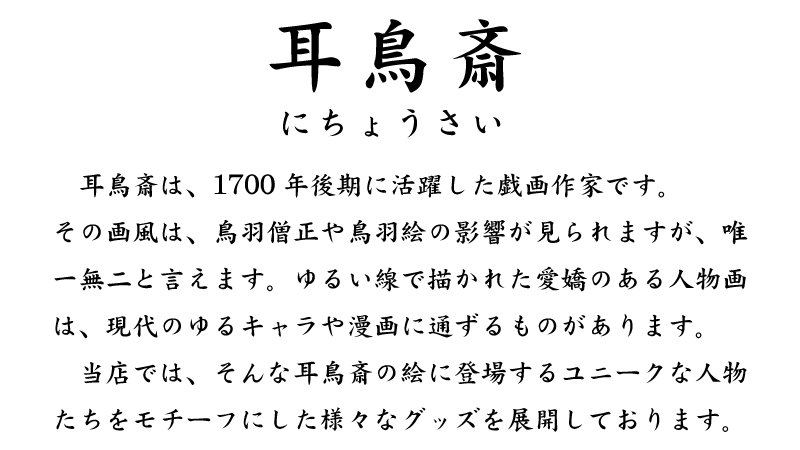 耳鳥斎
にちょうさい
耳鳥斎は、1700 年後期に活躍した戯画作家です。
その画風は、鳥羽僧正や鳥羽絵の影響が見られますが、唯
一無二と言えます。ゆるい線で描かれた愛嬌のある人物画
は、現代のゆるキャラや漫画に通ずるものがあります。
当店では、そんな耳鳥斎の絵に登場するユニークな人物
たちをモチーフにした様々なグッズを展開しております。